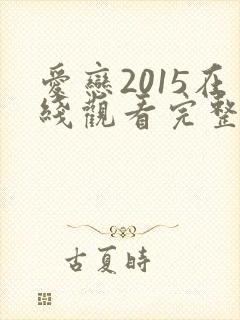 愛戀2015在
綫觀看完整
古夏時